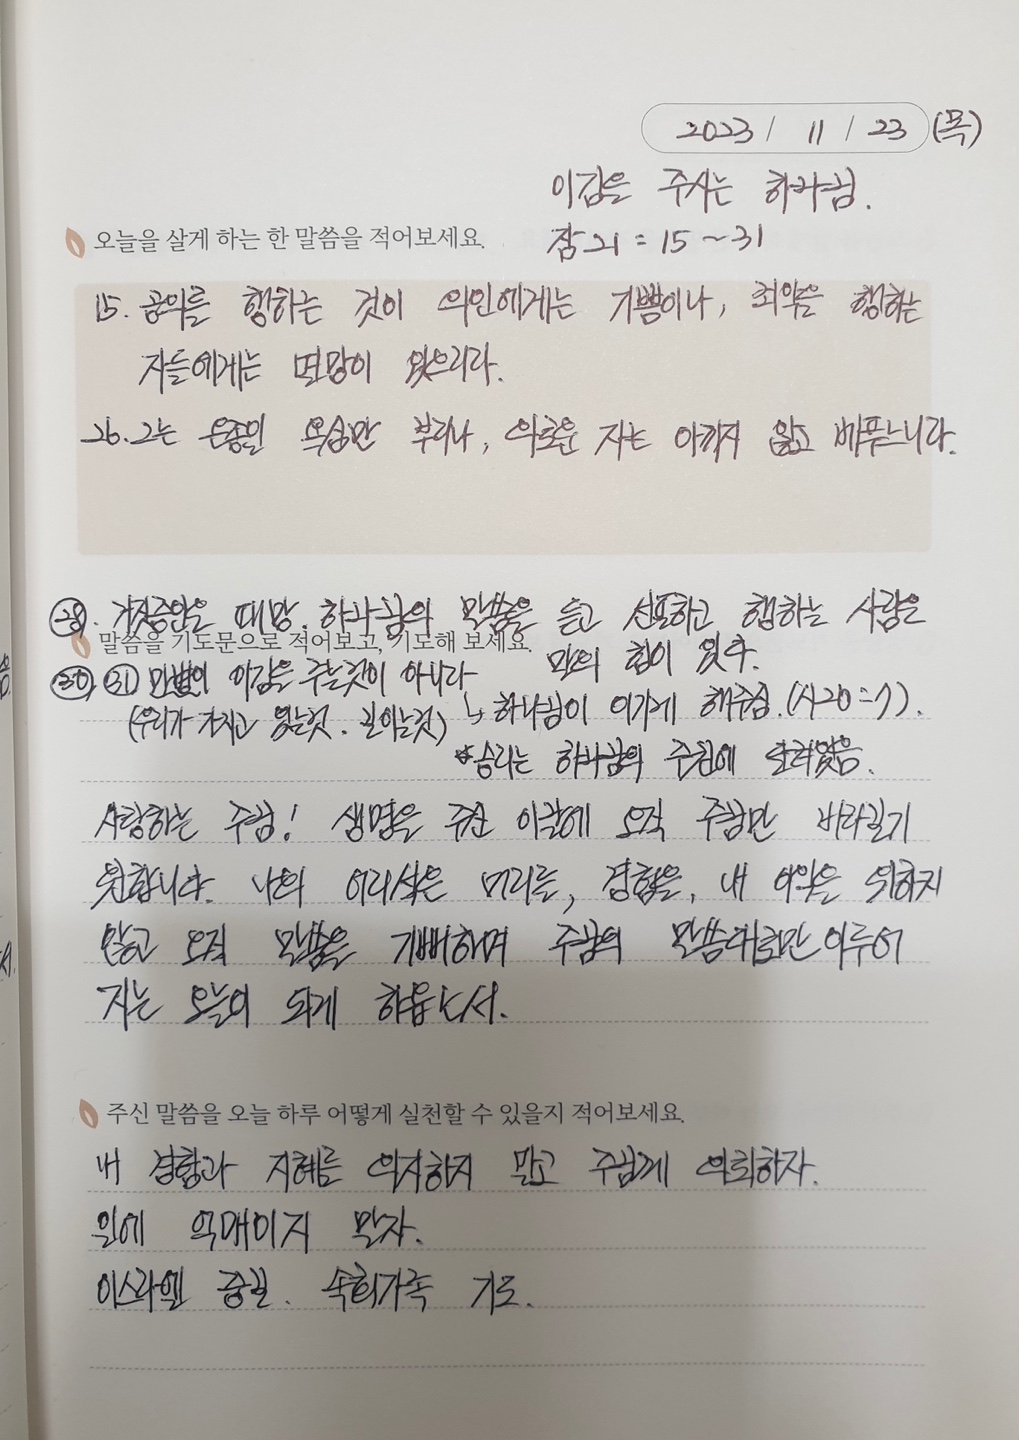 2023 / 11 / 23 (목)
이김을 주시는 하나님.
오늘을 살게 하는 한 말씀을 적어보세요.
잠21 = 15 ~ 31
15. 공의를 행하는 것이 의인에게는 기쁨이나, 죄악을 행하는
자들에게는 멸망이 있으리라.
26. 그는 온종일 욕심만 부리나, 의로운 자는 아끼지 않고 베푸느니라.
28. 거짓증인은 패망. 하나님의 말씀을 듣고 선포하고 행하는 사람은
말씀을 기도문으로 적어보고, 기도해 보세요.
말의 힘이 있다.
30, 31 마병이 이김을 주는것이 아니라
↳ 하나님이 이기게 해주심. (시20=7).
(우리가 가지고 있는것. 길이는것)
* 승리는 하나님의 주권에 달려있음.
사랑하는 주님! 생명을 주신 이날에 오직 주님만 바라길기
원합니다. 나의 어리석은 머리를, 경험을, 내 야악을 의하지
않고 오직 말씀을 기뻐하며 주님의 말씀대로만 이루어
지는 오늘이 되게 하옵소서.
주신 말씀을 오늘 하루 어떻게 실천할 수 있을지 적어보세요.
내 경험과 지혜를 의지하지 말고 주님께 의뢰하자.
일에 얽매이지 말자.
이스라엘 중길. 속회가족 기도.